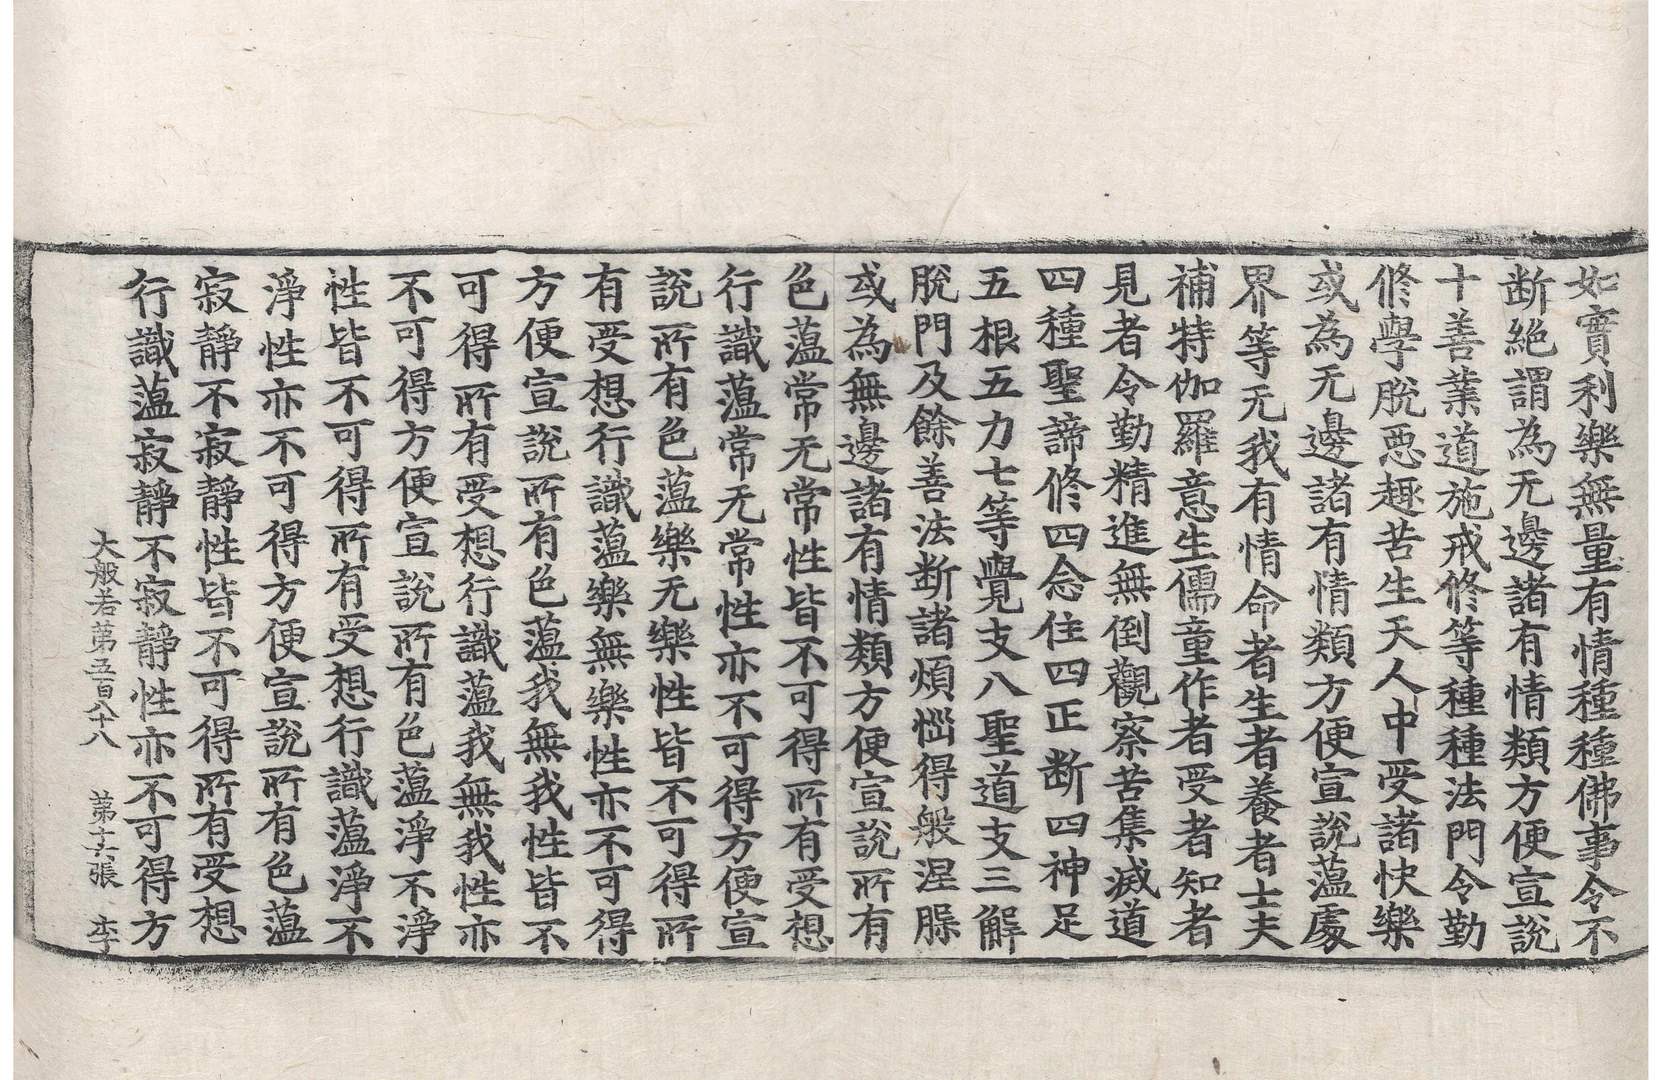 如實利樂無量有情種種佛事令不
断絶謂為无邊諸有情類方便宣說
十善業道施戒修等種種法門令勤
修學脫惡趣苦生天人中受諸快樂
或為无邊諸有情類方便宣說蕰處
界等无我有情命者生者養者士夫
補特伽羅意生儒童作者受者知者
見者令勤精進無倒觀察苦集滅道
四種聖諦修四念住四正断四神足
五根五力七等覺支八聖道支三解
脫門及餘善法断諸煩惱得般涅槃
或為無邊諸有情類方便宣說所有
色蕰常无常性皆不可得所有受想
行識蕰常无常性亦不可得方便宣
說所有色蕰樂无樂性皆不可得所
有受想行識蕰樂無樂性亦不可得
方便宣說所有色蕰我無我性皆不
可得所有受想行識蕰我無我性亦
不可得方便宣說所有色蕰淨不淨
性皆不可得所有受想行識蕰淨不
淨性亦不可得方便宣說所有色蕰
寂靜不寂靜性皆不可得所有受想
行識蕰寂靜不寂靜性亦不可得方
大般若第五百八十八 第十六張 李